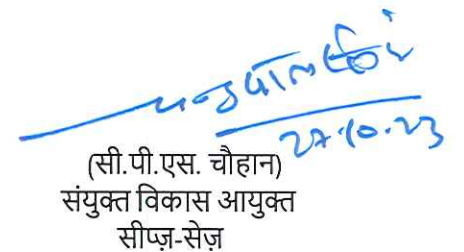 27.10.23
(सी.पी.एस. चौहान)
संयुक्त विकास आयुक्त
सीप्ज़-सेज़